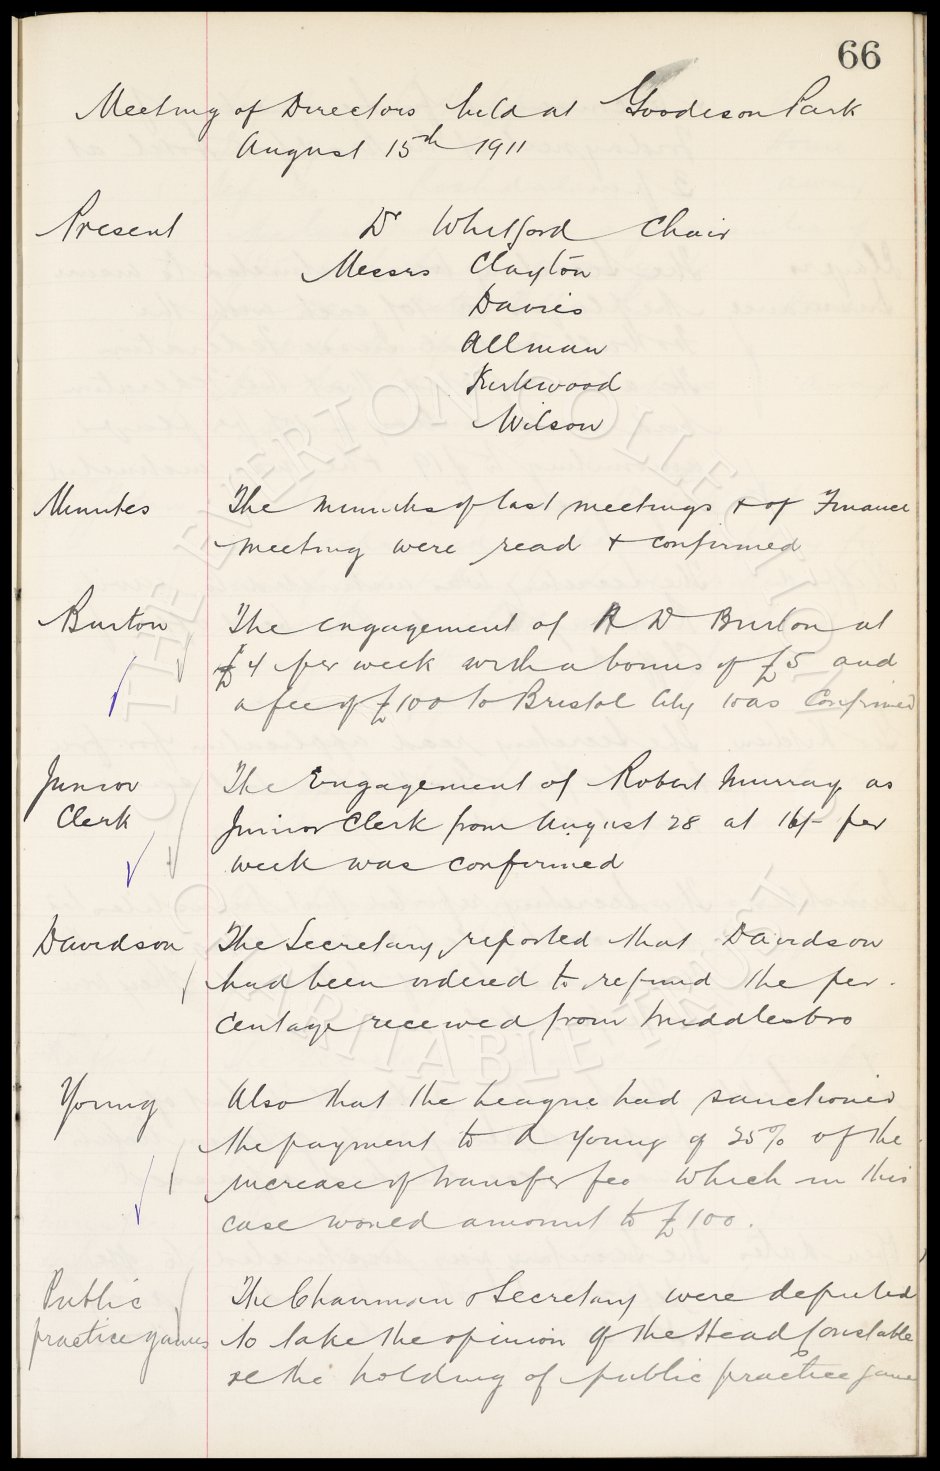 66
Meeting of Directors held at Goodison Park
August 15th 1911
Present Dr Whitford Chair
Messrs Clayton
Davies
Allman
Kirkwood
Wilson
Minutes The minutes of last meetings & of Finance
meeting were read & confirmed
Burton The engagement of A D Burton at
£4 per week with a bonus of £5 and
a fee of £100 to Bristol City was confirmed
Junior The Engagement of Robert Murray as
Clerk Junior Clerk from August 28 at 16/- per
week was confirmed
Davidson The Secretary reported that Davidson
had been ordered to refund the per
centage received from Middlesbro
Young Also that the League had sanctioned
the payment to A Young of 25% of the
increase of transfer fee which in this
case would amount to £100.
Public The Chairman & Secretary were deputed
practice games to take the opinion of the Head Constable
re the holding of public practice game
THE EVERTON COLLECTION
CHARITABLE TRUST